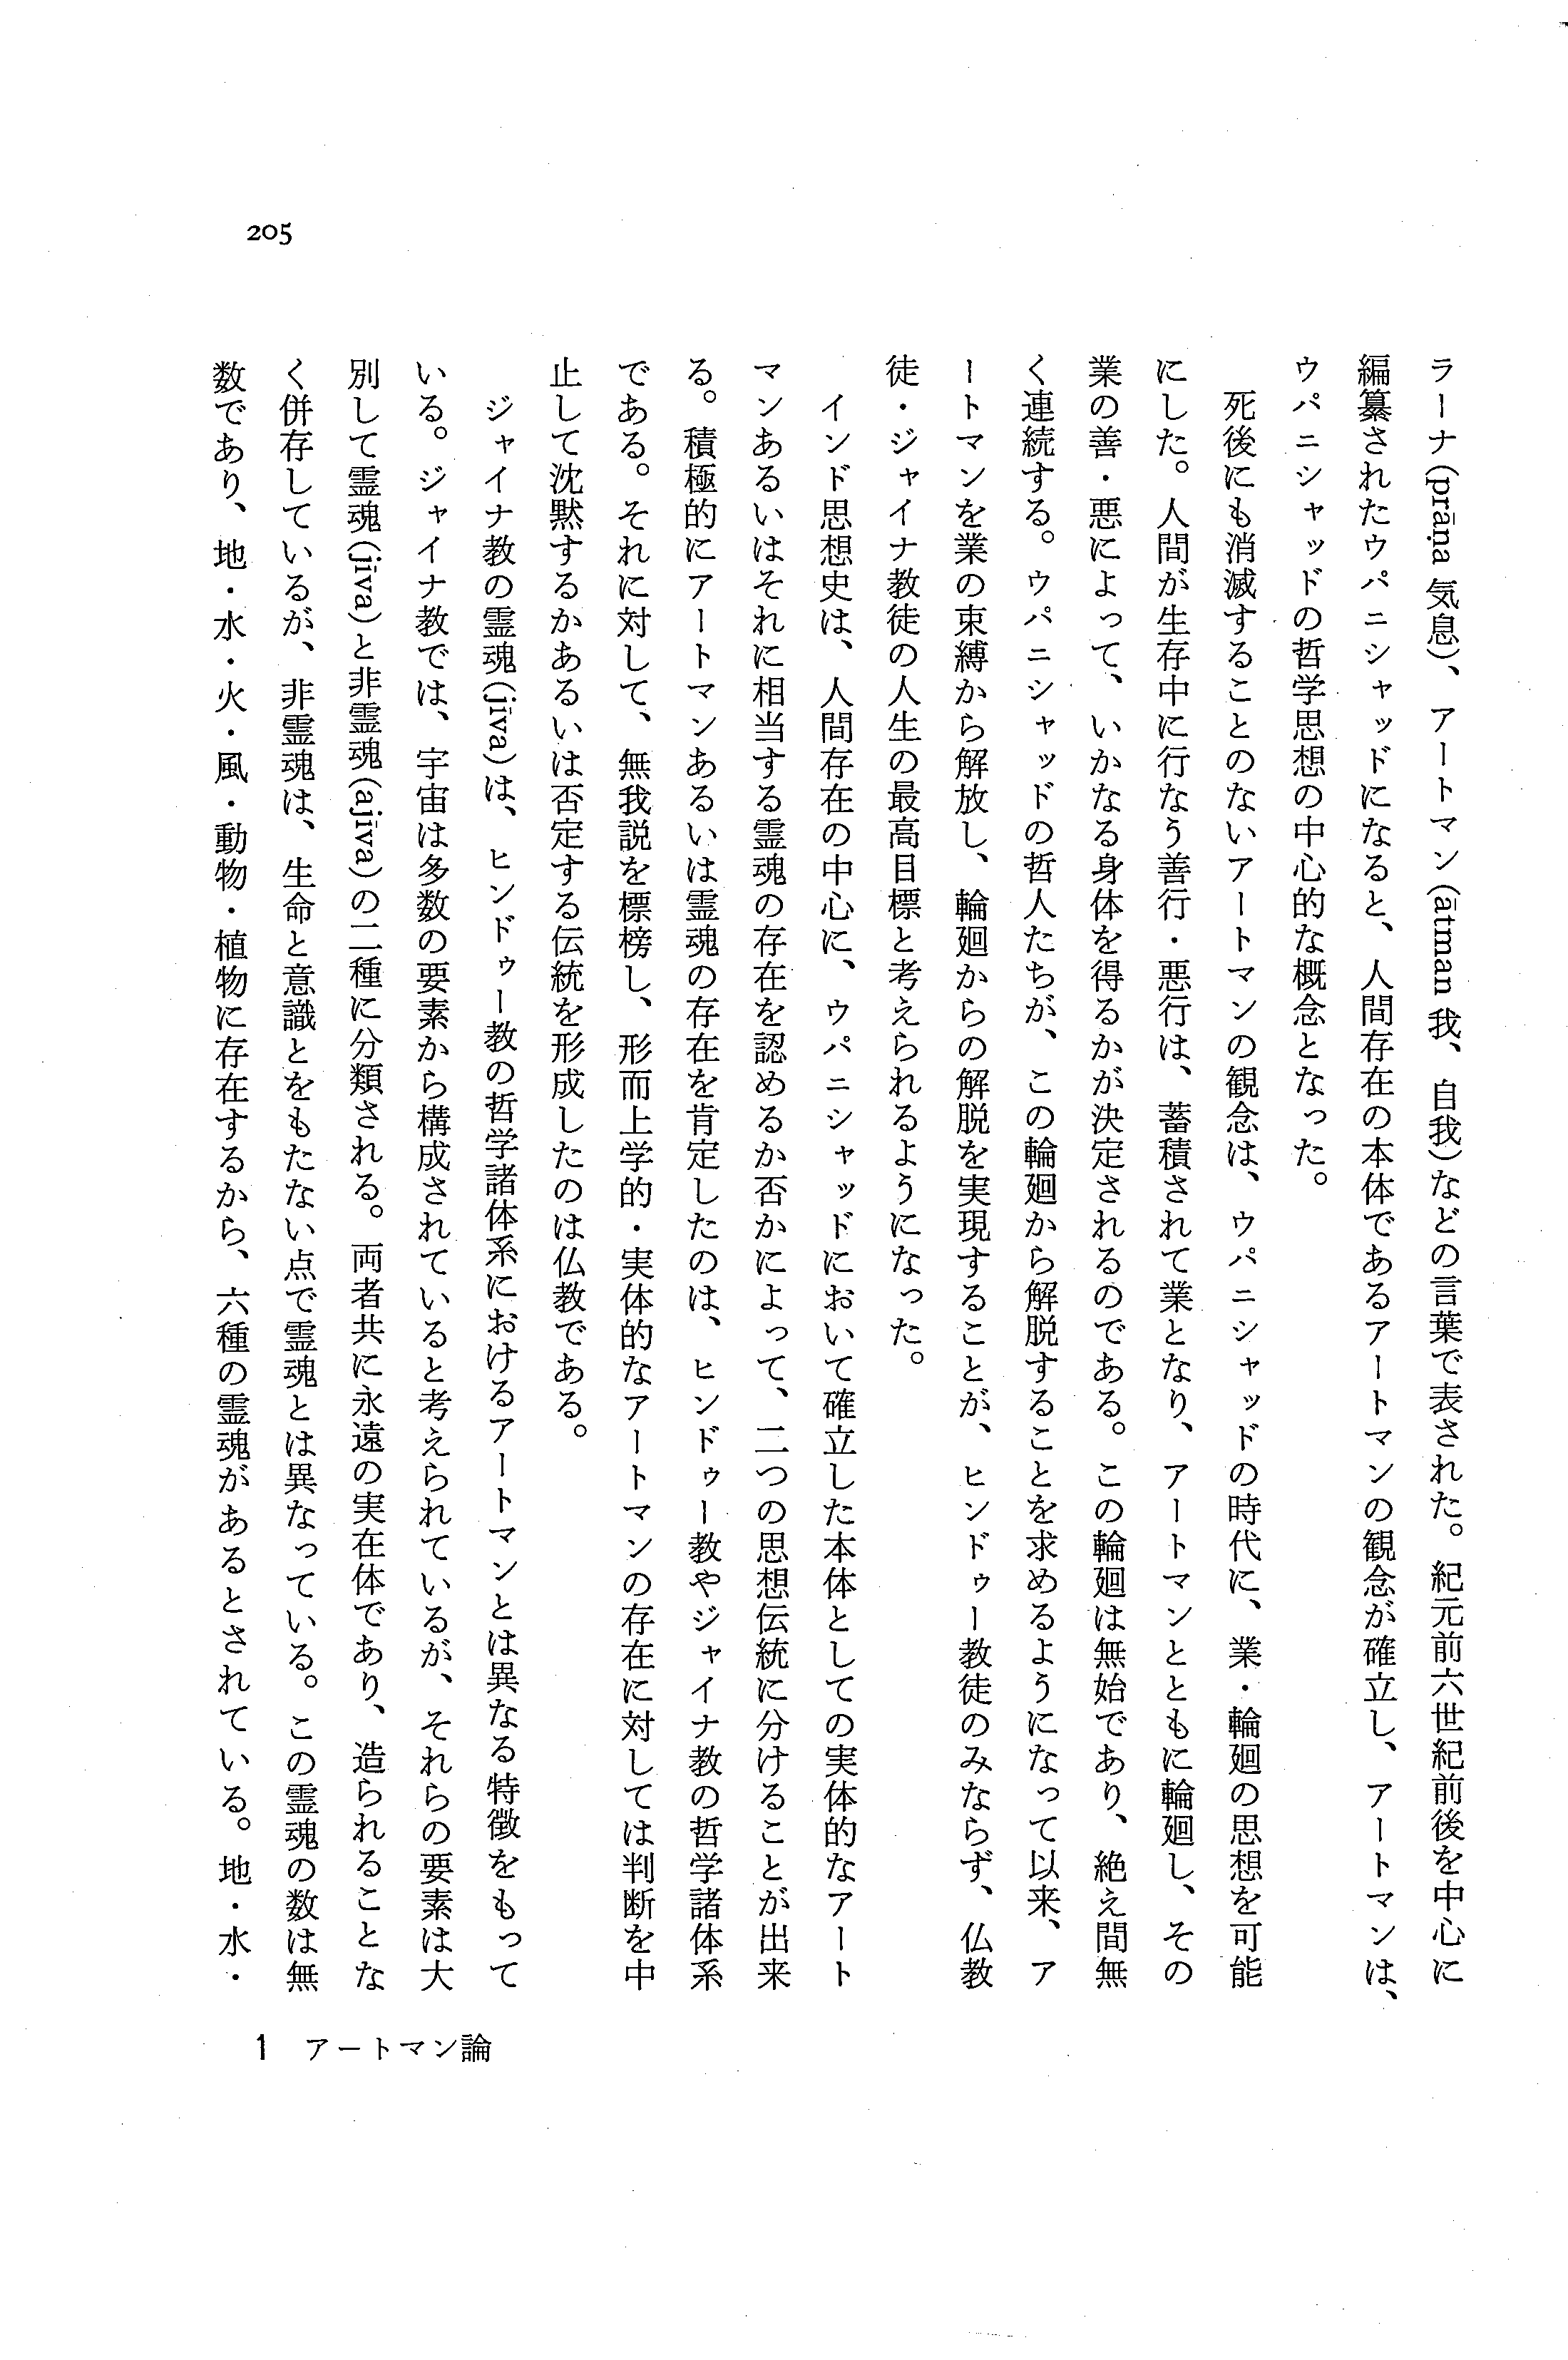 ラーナ(prāṇa 気息)、アートマン(ātman 我、自我)などの言葉で表された。紀元前六世紀前後を中心に
編纂されたウパニシャッドになると、人間存在の本体であるアートマンの観念が確立し、アートマンは、
ウパニシャッドの哲学思想の中心的な概念となった。
死後にも消滅することのないアートマンの観念は、ウパニシャッドの時代に、業・輪廻の思想を可能
にした。人間が生存中に行なう善行・悪行は、蓄積されて業となり、アートマンとともに輪廻し、その
業の善・悪によって、いかなる身体を得るかが決定されるのである。この輪廻は無始であり、絶え間無
く連続する。ウパニシャッドの哲人たちが、この輪廻から解脱することを求めるようになって以来、ア
ートマンを業の束縛から解放し、輪廻からの解脱を実現することが、ヒンドゥー教徒のみならず、仏教
徒・ジャイナ教徒の人生の最高目標と考えられるようになった。
インド思想史は、人間存在の中心に、ウパニシャッドにおいて確立した本体としての実体的なアート
マンあるいはそれに相当する霊魂の存在を認めるか否かによって、二つの思想伝統に分けることが出来
る。積極的にアートマンあるいは霊魂の存在を肯定したのは、ヒンドゥー教やジャイナ教の哲学諸体系
である。それに対して、無我説を標榜し、形而上学的・実体的なアートマンの存在に対しては判断を中
止して沈黙するかあるいは否定する伝統を形成したのは仏教である。
ジャイナ教の霊魂(jīva)は、ヒンドゥー教の哲学諸体系におけるアートマンとは異なる特徴をもって
いる。ジャイナ教では、宇宙は多数の要素から構成されていると考えられているが、それらの要素は大
別して霊魂(jīva)と非霊魂(ajīva)の二種に分類される。両者共に永遠の実在体であり、造られることな
く併存しているが、非霊魂は、生命と意識とをもたない点で霊魂とは異なっている。この霊魂の数は無
数であり、地・水・火・風・動物・植物に存在するから、六種の霊魂があるとされている。地・水・
205
1 アートマン論